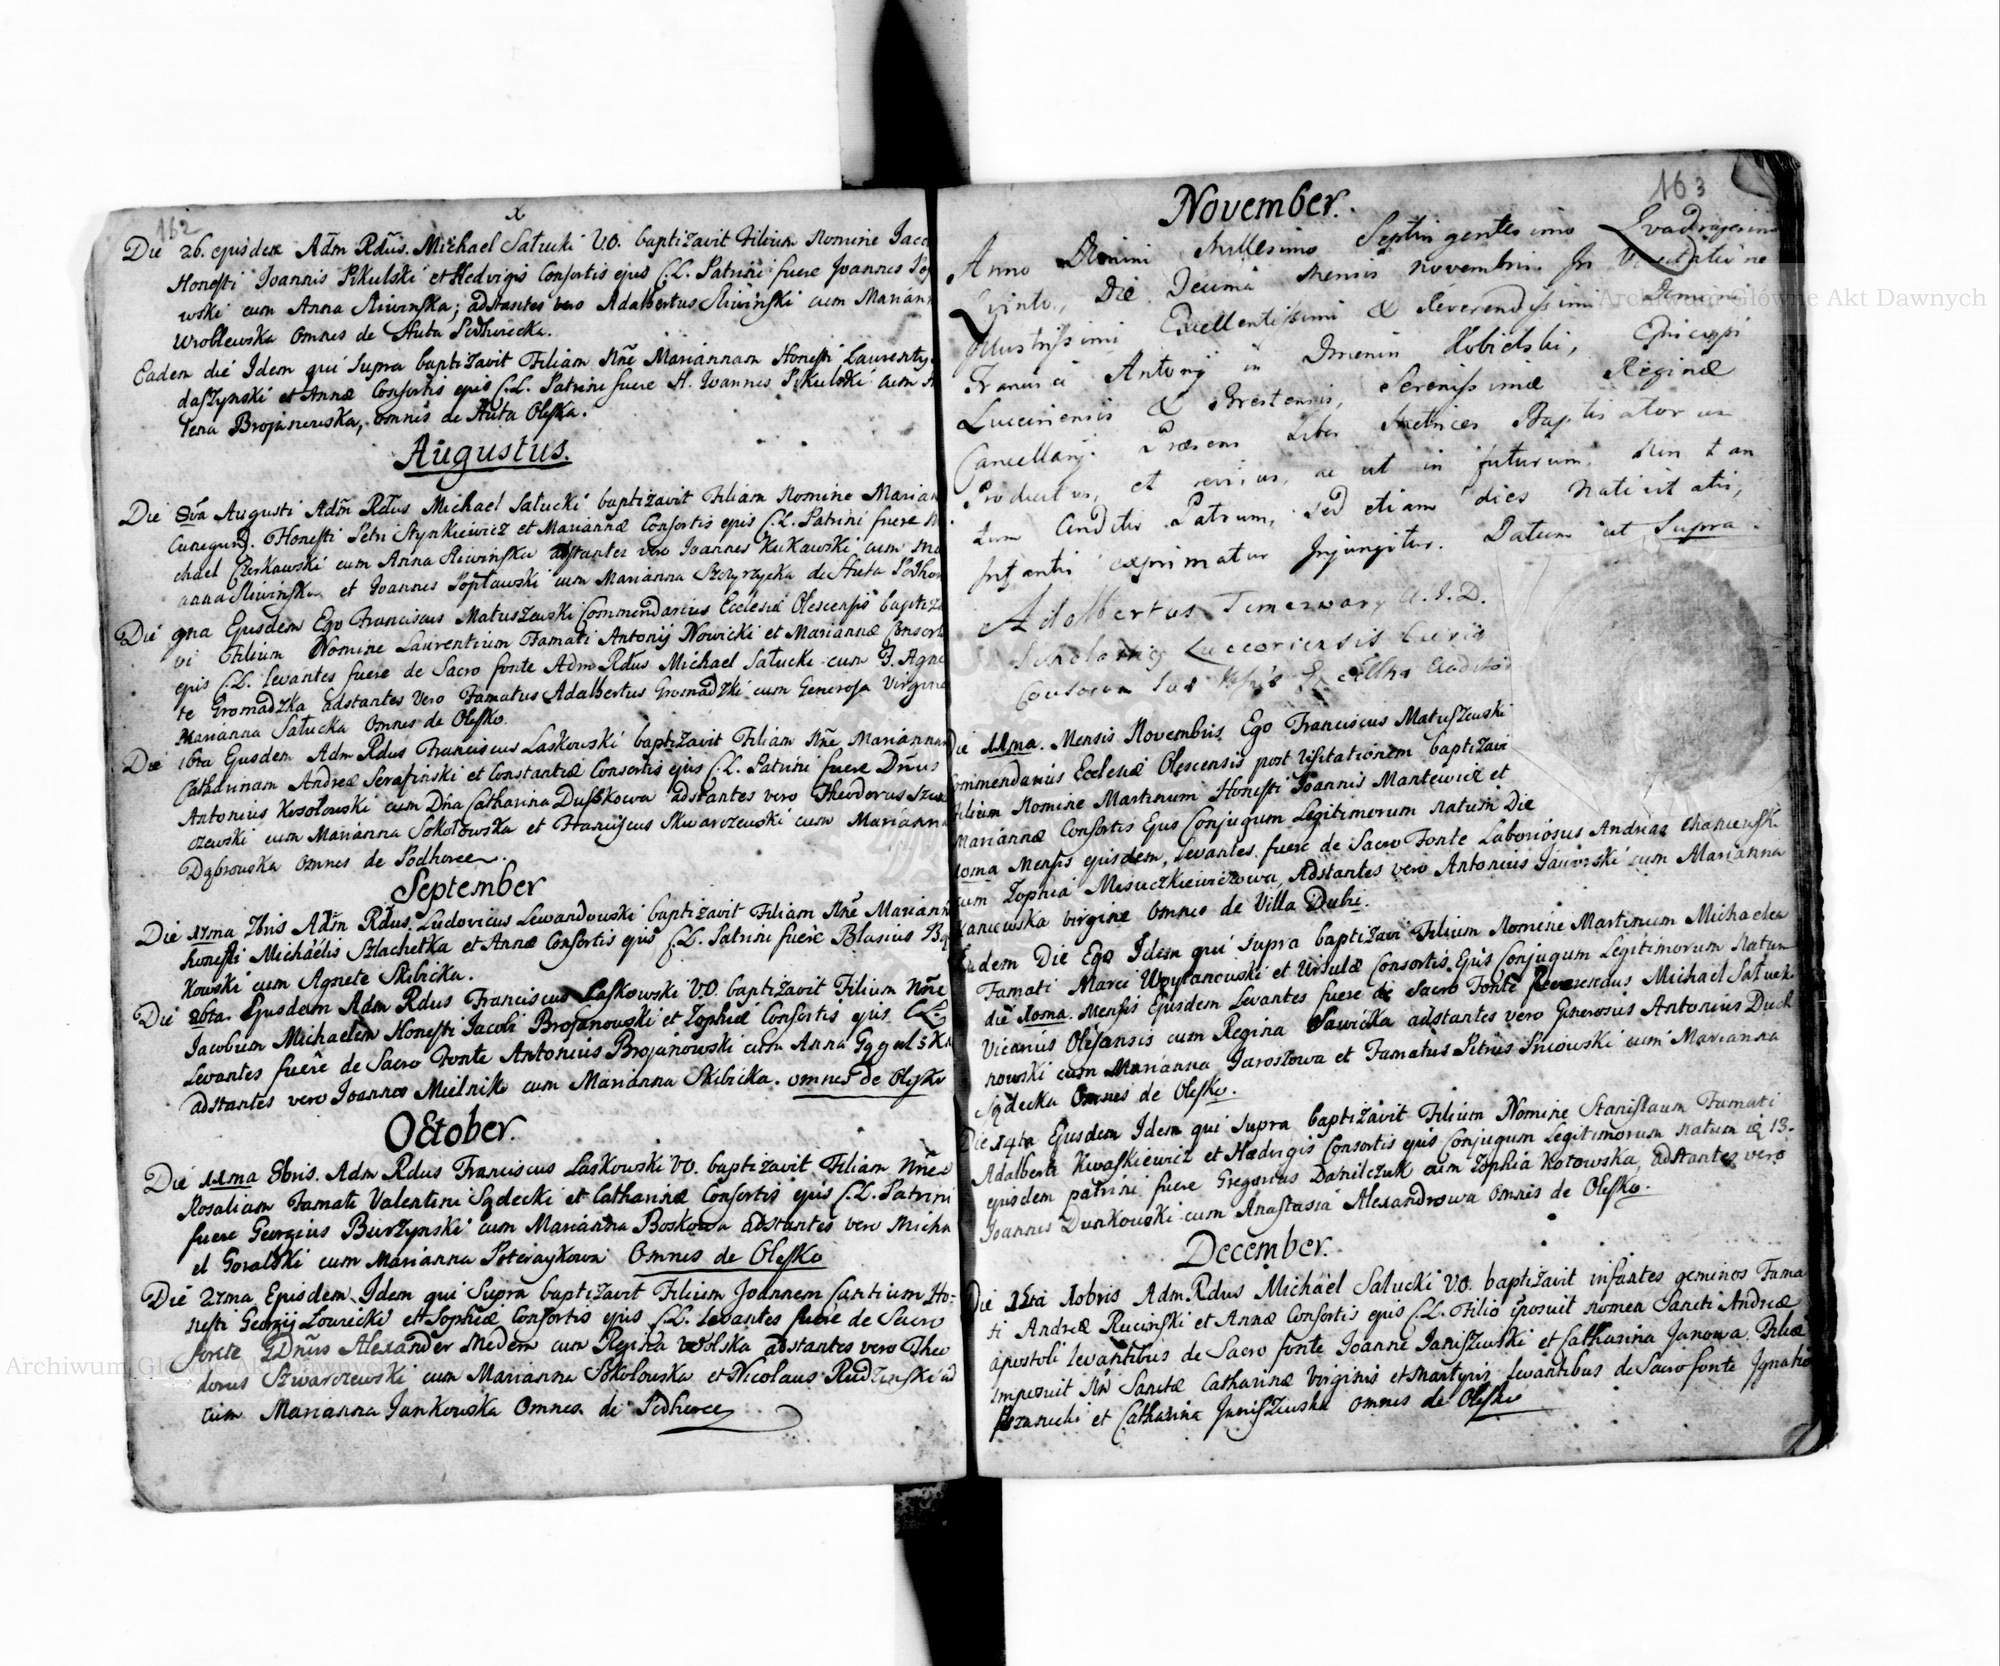 162
x
Die 26. ejusdem Adm Rdus. Michael Satucki VD. baptizavit Filium Nomine Jaco
Honesti Joannis Pikulski et Hedvigis Consortis ejus C.L. Patrini fuere Joannes
wski cum Anna Riwinska; adstantes vero Adalbertus Riwinski cum Mariann
Wroblewska omnes de Huta Podhorecka.
Eadem die Idem qui supra baptizavit Filiam Nne Mariannam Honesti Laurentij
daszynski et Annæ Consortis ejus C.L. Patrini fuere H. Joannes Pikulski cum
lena Brojanowska, omnes de Huta Oleska.
Augustus.
Die 8va Augusti Adm Rdus Michael Satucki baptizavit Filiam Nomine Marian
Cunegund. Honesti Petri Stynkiewicz et Mariannæ Consortis ejus C.L. Patrini fuere
chael Czerkawski cum Anna Riwinska adstantes vero Joannes Kukawski cum Ma
anna Riwinska et Joannes Poptawski cum Marianna Szczyrzycka de Huta Podhor
Die 9na Ejusdem Ego Franciscus Matuszewski Commendarius Ecclesiæ Olescensis baptiza
vi Filium Nomine Laurentium Famati Antonij Nowicki et Mariannæ Consort
ejus C.L. levantes fuere de Sacro fonte Adm Rdus Michael Satucki cum F. Agne
te Gromadzka adstantes vero Famatus Adalbertus Gromadzki cum Generosa Virgine
Marianna Satucka omnes de Olesko.
Die 16ta Ejusdem Adm Rdus Franciscus Laskowski baptizavit Filiam Nne Mariannam
Catharinam Andreæ Serafinski et Constantiæ Consortis ejus C.L. Patrini fuere Dnus
Antonius Kosolowski cum Dna Catharina Duszkowa adstantes vero Theodorus
czewski cum Marianna Sokolowska et Franciscus Skwarczewski cum Marianna
Dąbrowska omnes de Podhorce.
September
Die 17ma 7bris Adm Rdus Ludovicus Lewandowski baptizavit Filiam Nne Mariann
honesti Michaelis Szlachetka et Annæ Consortis ejus C.L. Patrini fuere Blasius
kowski cum Agnete Skibicka.
Die 26ta Ejusdem Adm Rdus Franciscus Laskowski VD. baptizavit Filium Nne
Jacobum Michaelem Honesti Jacobi Brojanowski et Zophiæ Consortis ejus C.L.
Levantes fuere de Sacro Fonte Antonius Brojanowski cum Anna
adstantes vero Joannes Mielnik cum Marianna Skibicka. omnes de Olesko
October.
Die 11ma 8bris. Adm Rdus Franciscus Laskowski VD. baptizavit Filiam Nne
Rosaliam Famati Valentini Sądecki et Catharinæ Consortis ejus C.L. Patrini
fuere Georgius Burzynski cum Marianna Boskowa adstantes vero Micha
el Goralski cum Marianna Poteraykowa Omnes de Olesko
Die 27ma Ejusdem Idem qui Supra baptizavit Filium Joannem Cantium Ho-
nesti Georgij Lowiecki et Sophiæ Consortis ejus C.L. Levantes fuere de Sacro
fonte GDnus Alexander Medem cum Regina Wolska adstantes vero Theo
dorus Szwarczewski cum Marianna Sokolowska et Nicolaus Rudzinski
cum Marianna Jankowska Omnes de Podhorce
163
November.
Anno Domini Millesimo Septingentesimo Quadragesimo
Quinto, Die Decima Mensis Novembris In Visitatione
Illustrissimi Excellentissimi & Reverendissimi Domini
Francisci Antonij in Dmenin Kobielski, Episcopi
Luceoriensis & Brestensis, Serenissimæ Reginæ
Cancellarij. Præsens Liber Metrices Baptisatorum
Productus, et revisus, ac ut in futurum Non tan
tum Conditio Patrum, sed etiam dies Nativitatis,
Infantis exprimatur Injungitur. Datum ut Supra.
Adalbertus
Scholasticus Luceoriensis
Die 11ma. Mensis Novembris Ego Franciscus Matuszewski
Commendarius Ecclesiæ Olescensis post Visitationem baptizavi
Filium Nomine Martinum Honesti Joannis Mantewicz et
Mariannæ Consortis Ejus Conjugum Legitimorum natum Die
10ma Mensis ejusdem, levantes fuere de Sacro Fonte Laboriosus Andreas
cum Zophia Misiuczkiewiczowa, Adstantes vero Antonius Jaworski cum Marianna
Kaniewska virgine omnes de Villa Dubie.
Eadem Die Ego Idem qui supra baptizavi Filium Nomine Martinum Michaelem
Famati Marci Woytanowski et Ursulæ Consortis Ejus Conjugum Legitimorum Natum
die 10ma. Mensis Ejusdem Levantes fuere de Sacro Fonte Reverendus Michael Satucki
Vicarius Olescensis cum Regina Sawicka adstantes vero Generosus Antonius Duch
nowski cum Marianna Jaroszowa et Famatus Petrus Sniowski cum Marianna
Sądecka Omnes de Olesko.
Die 14ta Ejusdem Idem qui supra baptizavit Filium Nomine Stanislaum Famati
Adalberti Kwaskiewicz et Hedvigis Consortis ejus Conjugum Legitimorum natum 13.
ejusdem patrini fuere Gregorius Danilczuk cum Zophia Kotowska, adstantes vero
Joannes Dunkowski cum Anastasia Alexandrowa omnes de Olesko.
December.
Die 1ma 10bris Adm Rdus Michael Satucki VD. baptizavit infantes geminos Fama
ti Andreæ Rucinski et Annæ Consortis ejus C.L. Filio iposuit nomen Sancti Andreæ
apostoli levantibus de Sacro fonte Joanne Janiszewski et Catharina Janowa. Filiæ
imposuit Nn Sanctæ Catharinæ Virginis et Martyris levantibus de Sacro fonte Ignatio
et Catharina Janiszewska omnes de Olesko
Archiwum Główne Akt Dawnych
Archiwum Główne Akt Dawnych